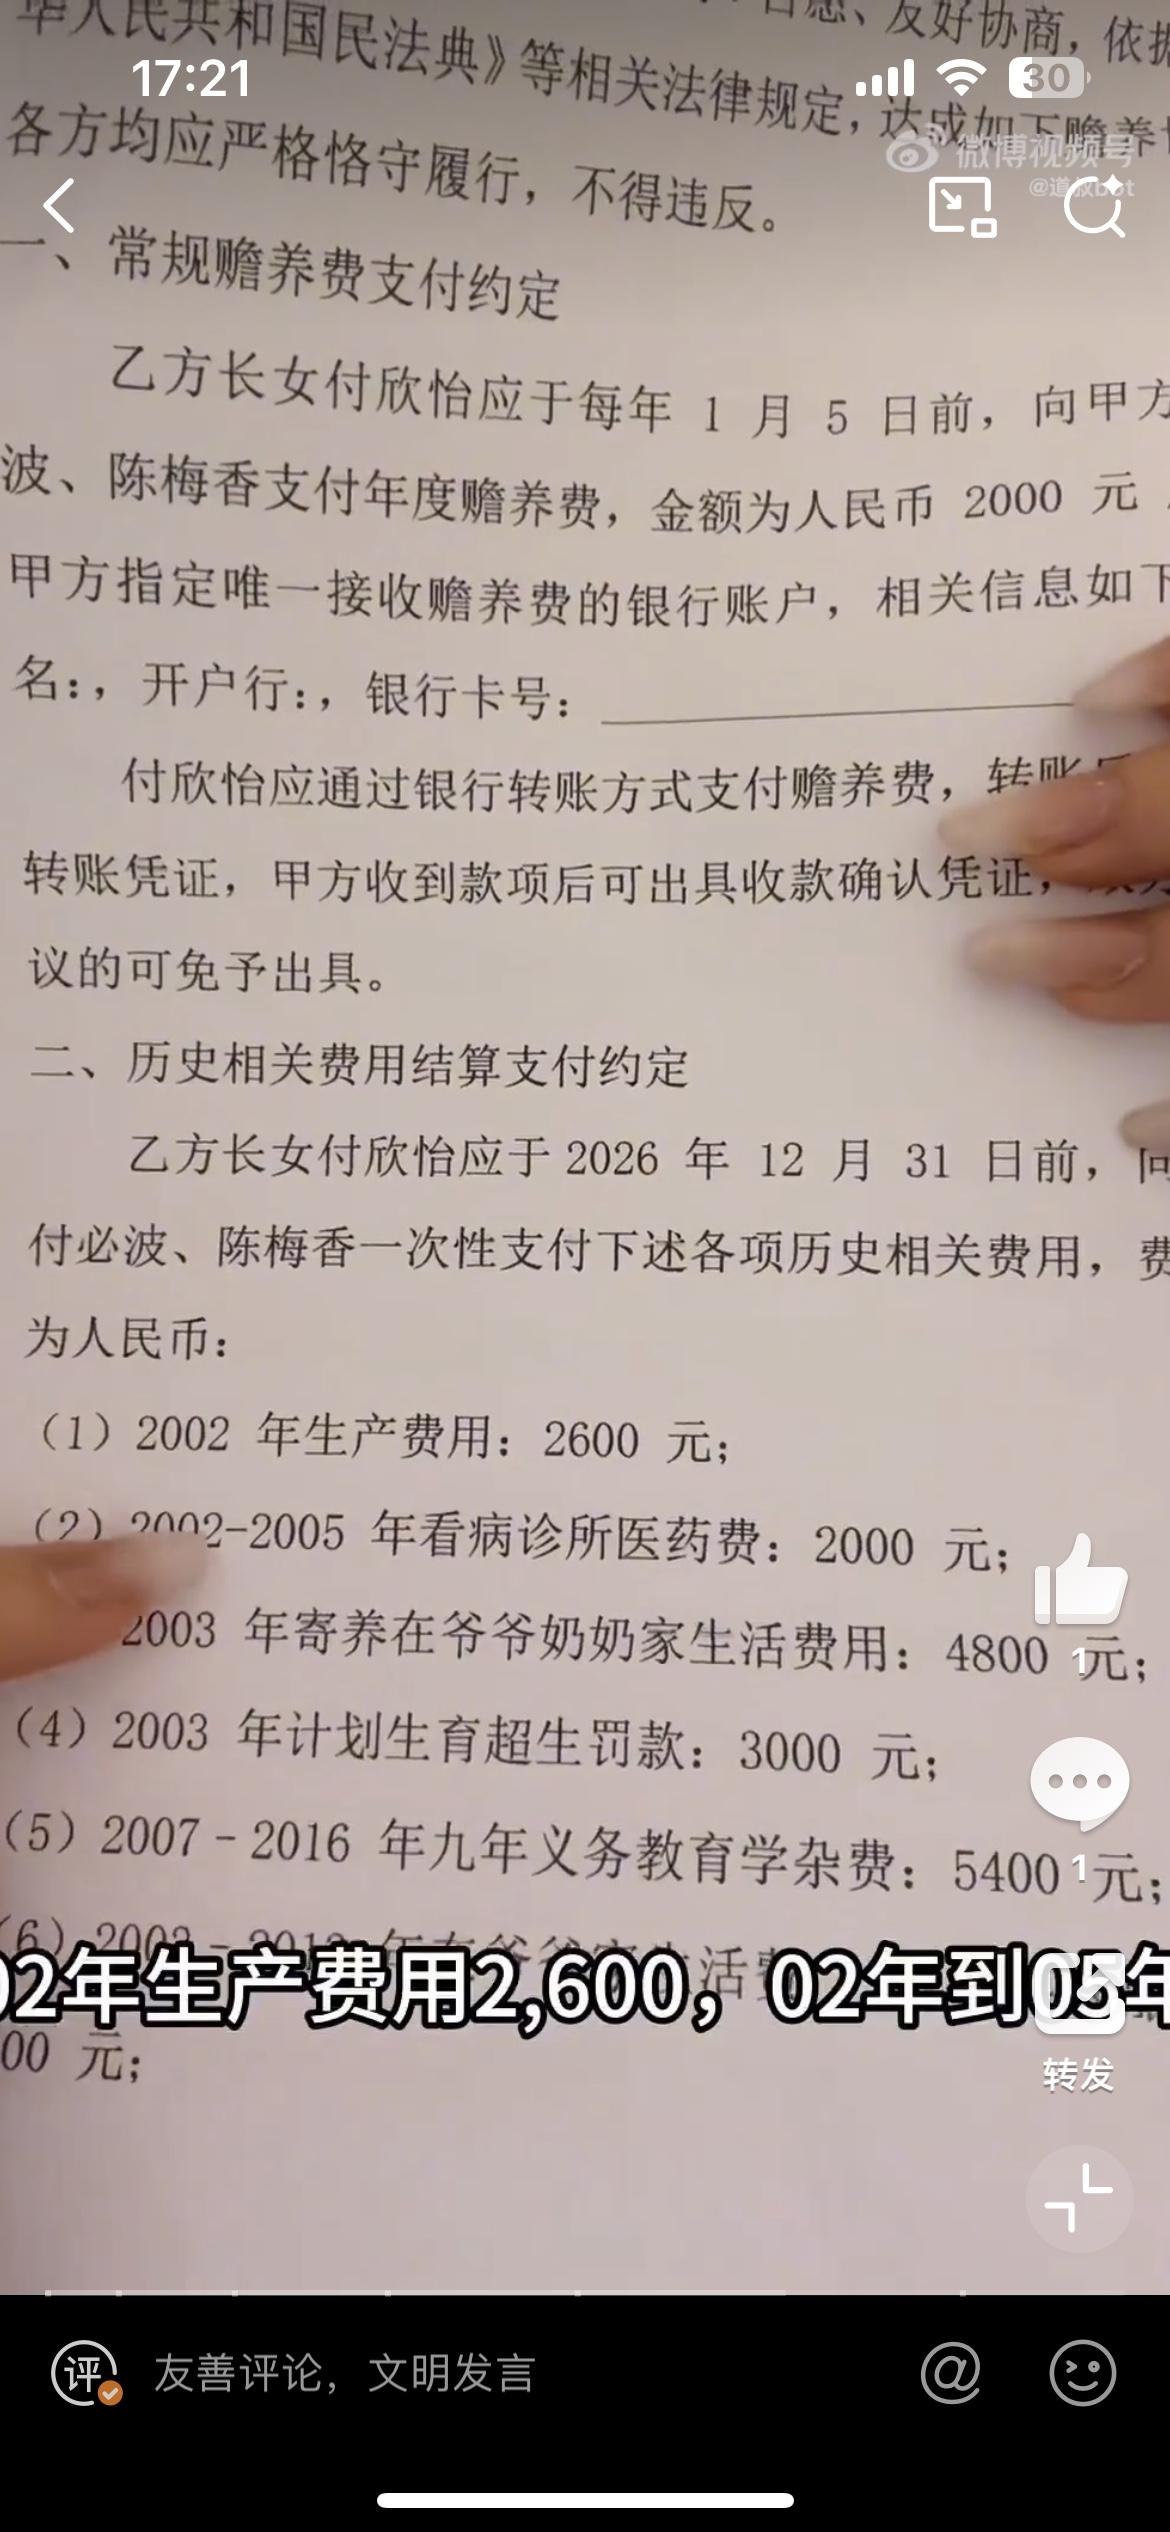 华人民共和国民法典》等相关法律规定，达成如下赡养
自愿、友好协商，依据
17:21
30
各方均应严格恪守履行，不得违反。
微博视频号
@道叔bot
一、常规赡养费支付约定
乙方长女付欣怡应于每年 1 月 5 日前，向甲方
波、陈梅香支付年度赡养费，金额为人民币 2000 元
甲方指定唯一接收赡养费的银行账户，相关信息如下
名：，开户行：，银行卡号：
付欣怡应通过银行转账方式支付赡养费，转账
转账凭证，甲方收到款项后可出具收款确认凭证，
议的可免予出具。
二、历史相关费用结算支付约定
乙方长女付欣怡应于 2026 年 12 月 31 日前，向
付必波、陈梅香一次性支付下述各项历史相关费用，费
为人民币：
（1）2002 年生产费用：2600 元；
（2）2002-2005 年看病诊所医药费：2000 元；
2003 年寄养在爷爷奶奶家生活费用：4800 元；
1
（4）2003 年计划生育超生罚款：3000 元；
（5）2007－2016 年九年义务教育学杂费：5400 元；
1
02年生产费用2,600，02年到05年
00 元；
转发
评 友善评论，文明发言
@